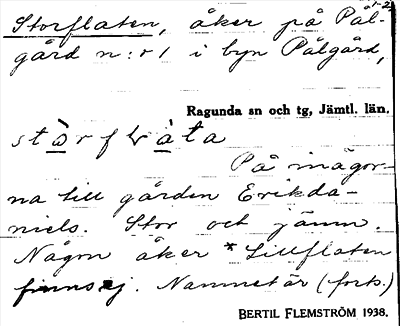 1-2
Storflaten, åker på Pål-
gård n:r 1 i byn Pålgård,
Ragunda sn och tg, Jämtl. län.
På inägor-
na till gården Erikda-
niels. Stor och jämn.
Någon åker *Lillflaten
finns ej. Namnet är (forts.)
BERTIL FLEMSTRÖM 1938.